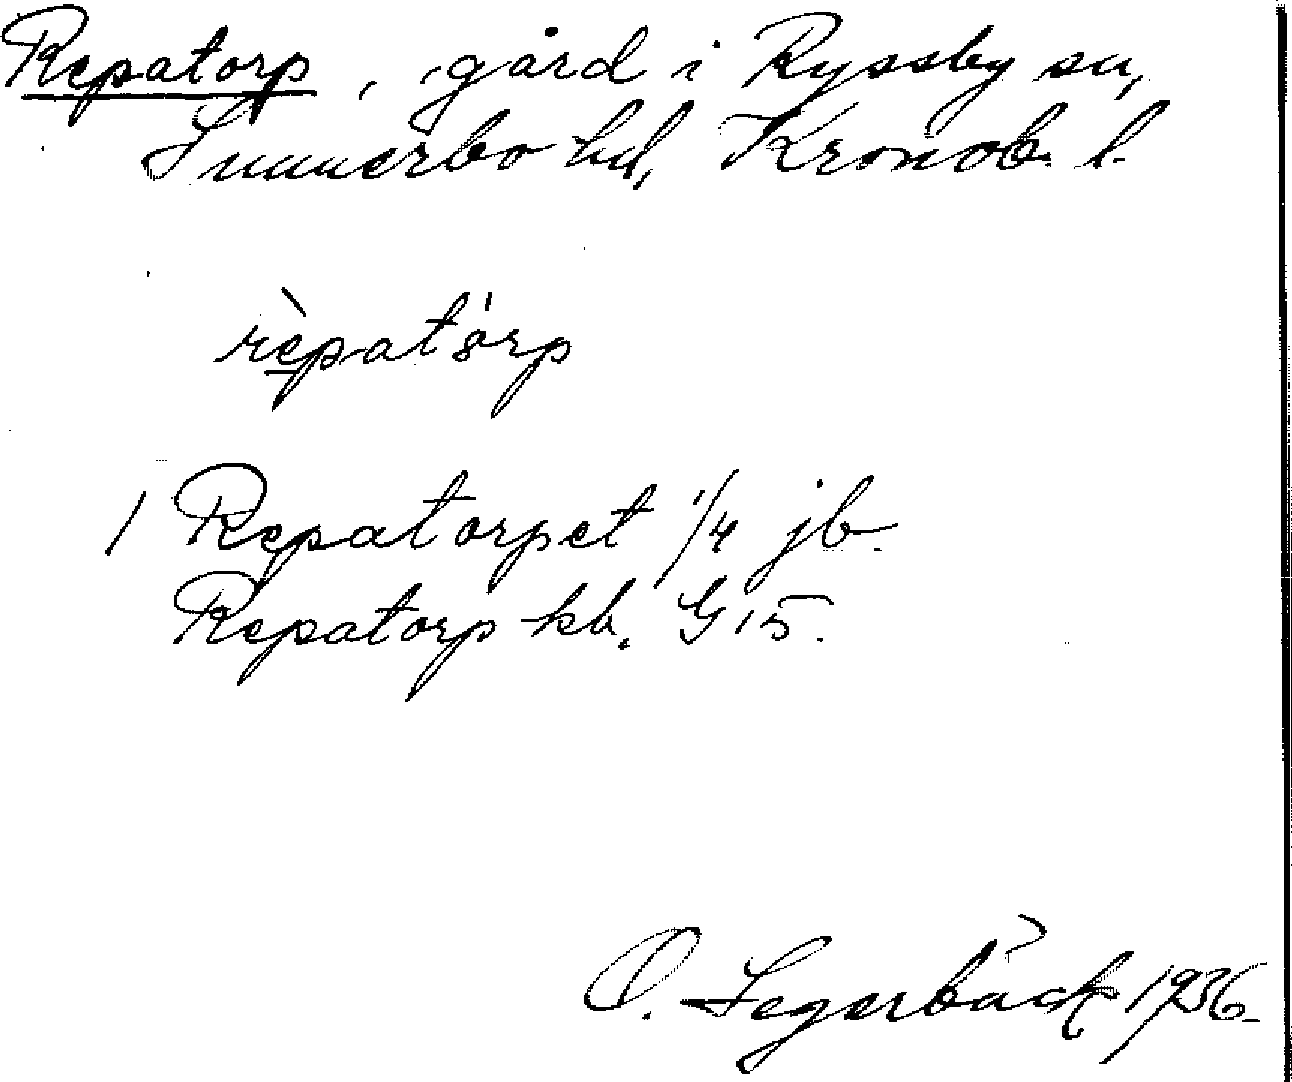 Repatorp, gård i Ryssby sn,
Sunnerbo hd, Kronob. l.
rèpatórp
1 Repatorpet 1/4 jb.
Repatorp kb. G 15.
O. Segerbäck 1936.